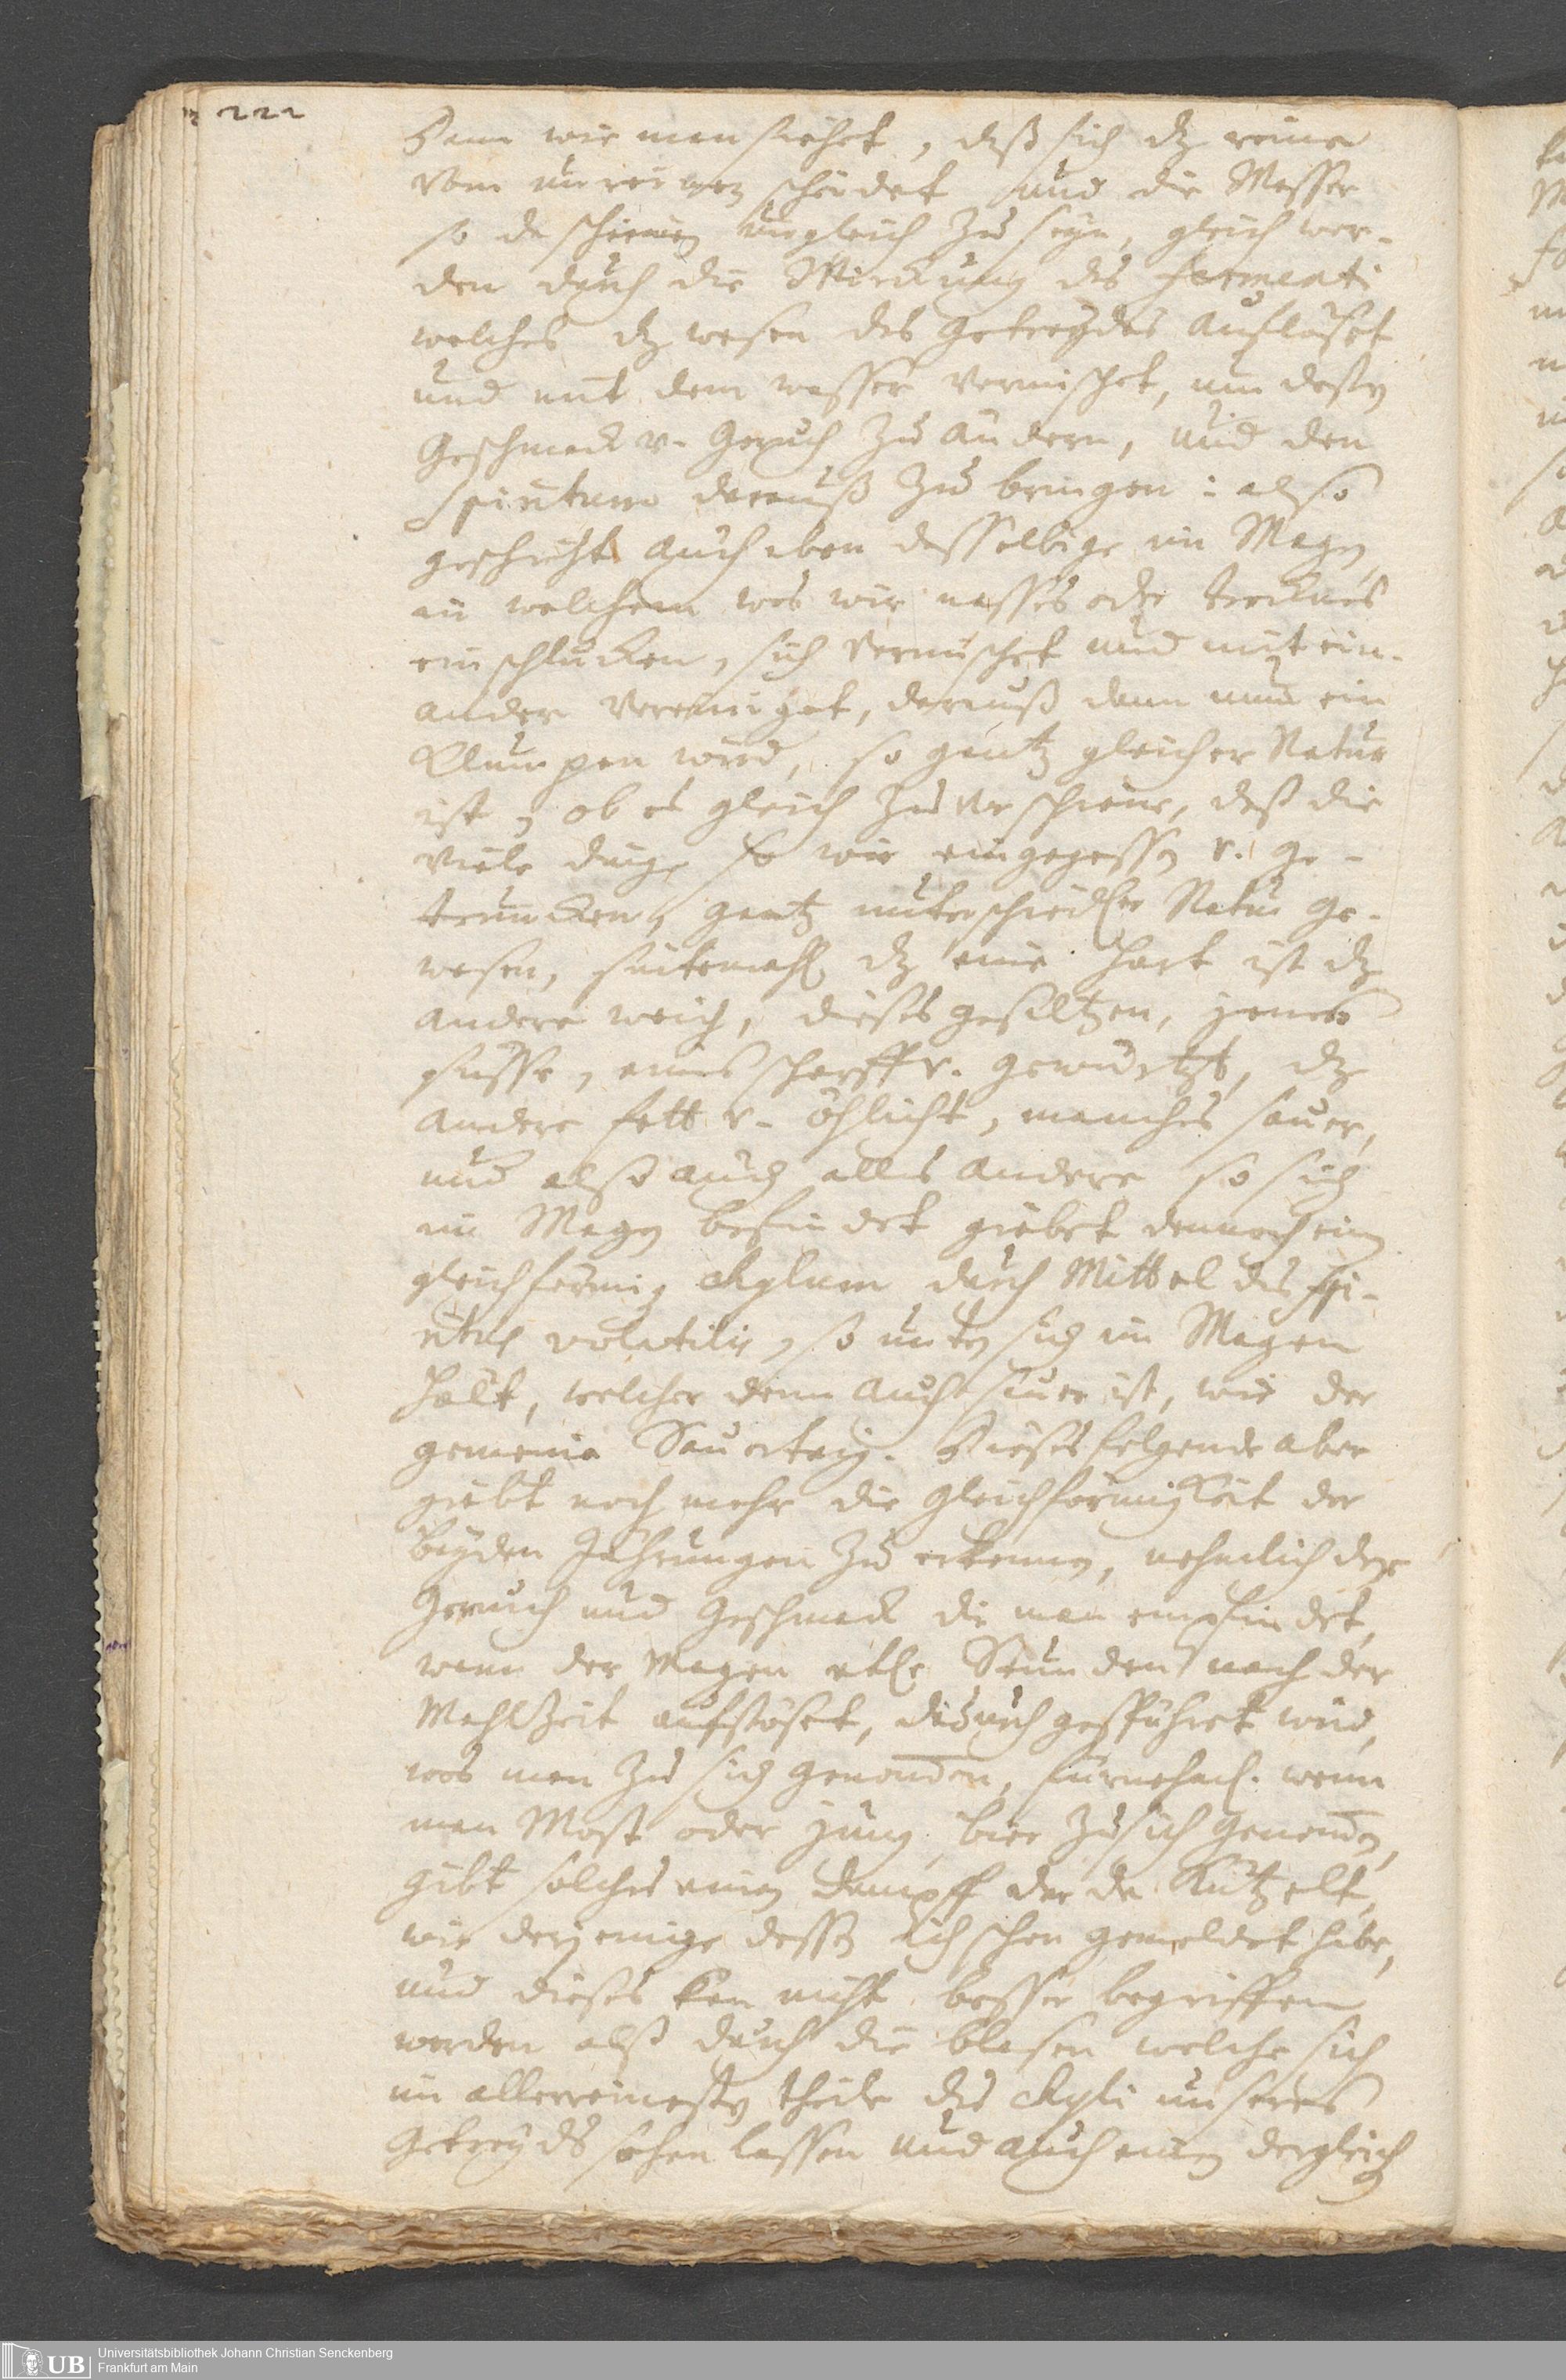 222
Dann wie man siehet, daß sich dz reine
vom unreinen scheidet und die Wasser
so da schienen ungleich zu seyn, gleich wer-
den durch die Wirckung des fermenti
welches dz wesen des getreydes aufflöset
und mit dem wasser vermischet, um dessen
Geschmack v. Geruch zu ändern, und den
Spiritum darauß zu bringen: also
geschicht auch eben dasselbige im Magen,
in welchem was wir nasses oder trocknes
einschlucken, sich vermischet und mit ein-
ander vereiniget, darauß dann nun ein
Klumpen wird, so gantz gleicher Natur
ist, ob es gleich zuvor schiene, daß die
viele dinge so wir eingegessen v. ge-
truncken, gantz unterschiedlicher Natur ge-
wesen, sintemahl dz eine hart ist dz
andere weich, dieses gesaltzen, jenes
süsse, eines scharff v. gewürtzt, dz
andere fett v. öhlicht, manches sauer,
und also auch alles andere so sich
im Magen befindet giebet dennoch ein
gleichförmig chylum durch Mittel des spi-
ritus volatilis, so unten sich im Magen
hält, welcher denn auch sauer ist, wie der
gemeine Sauerteig. Dieses folgende aber
giebt noch mehr die gleichförmigkeit der
beyden Jährungen zu erkennen, nehmlich der
Geruch und Geschmack die man empfindet,
wann der Magen etliche Stunden nach der
Mahlzeit aufstöset, dadurch gespühret wird,
was man zu sich genommen, fürnehml. wenn
man Most oder jung bier zu sich genommen,
gibt solches einen dampff der da kützelt,
wie derjenige dessen ich schon gemeldet habe,
und dieses kan nicht besser begriffen
werden alß durch die blasen welche sich
im allerreinesten theile des chyli unseres
Getreyds sehen lassen und auch einen dergleich
Universitätsbibliothek Johann Christian Senckenberg
Frankfurt am Main
UB